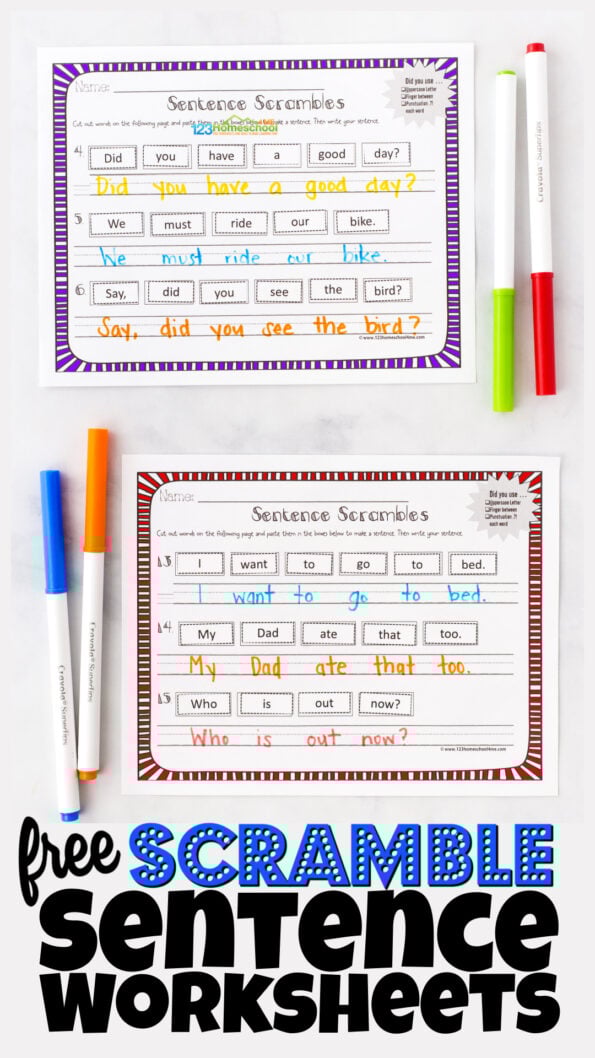 Name:
Did you use ...
Uppercase Letter
Finger between
Punctuation .?!
each word
Sentence Scrambles
Cut out words on the following page and paste them in the boxes below to make a sentence. Then write your sentence.
123Homeschool
4. Did you have a good day?
Did you have a good day?
5. We must ride our bike.
We must ride our bike.
6. Say, did you see the bird?
Say, did you see the bird?
© www.123homeschool4me.com
Crayola® SuperTips
Name:
Did you use ...
Uppercase Letter
Finger between
Punctuation .?!
each word
Sentence Scrambles
Cut out words on the following page and paste them in the boxes below to make a sentence. Then write your sentence.
13. I want to go to bed.
I want to go to bed.
14. My Dad ate that too.
My Dad ate that too.
15. Who is out now?
Who is out now?
© www.123homeschool4me.com
Crayola® SuperTips
Crayola® SuperTips
free SCRAMBLE
SENTENCE
WORKSHEETS